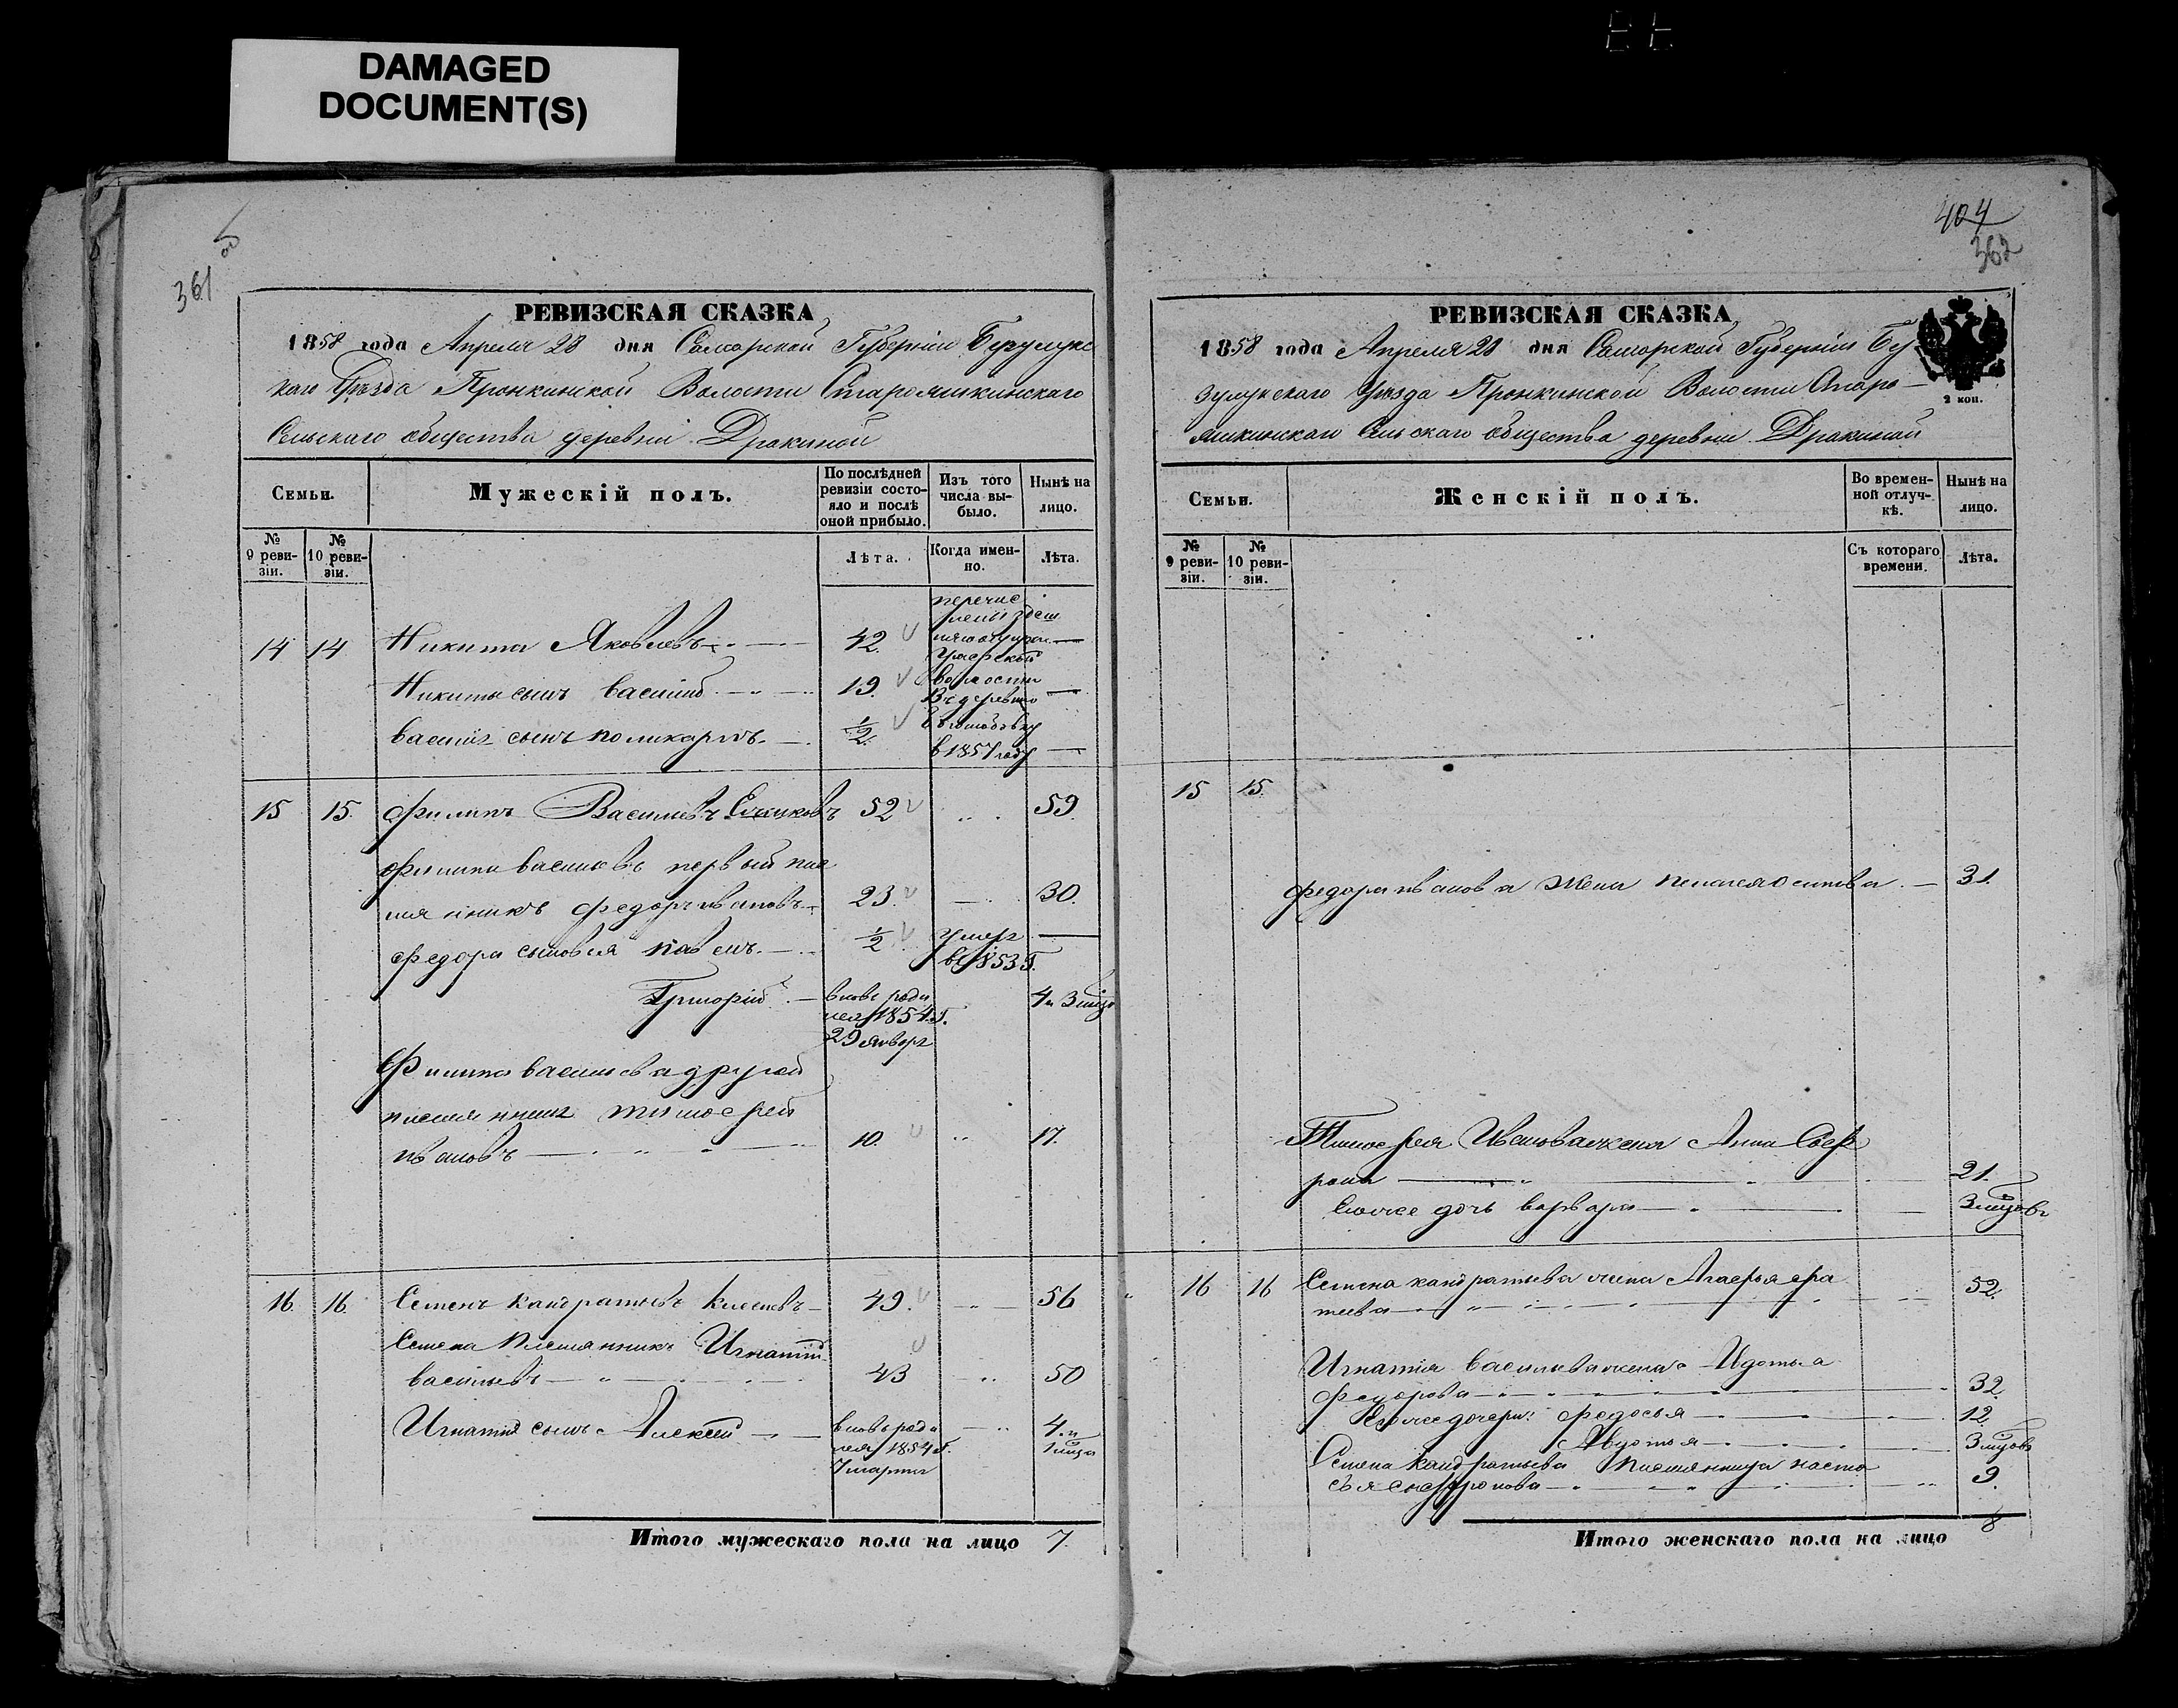 DAMAGED
DOCUMENT(S)
361
об
РЕВИЗСКАЯ СКАЗКА
1858 года Апреля 28 дня Самарской Губерніи Бузулукс
каго Уѣзда Пронкинской Волости Старояшкинскаго
Сельскаго общества деревни Дракиной
Семьи.
Мужескій полъ.
По послѣдней
ревизіи состо-
яло и послѣ
оной прибыло.
Изъ того
числа вы-
было.
Нынѣ на
лицо.
№
9 реви-
зіи.
№
10 реви-
зіи.
Лѣта.
Когда имен-
но.
Лѣта.
14 14 Никита Яковлевъ 42
Никиты сынъ василий 19.
василия сынъ поликарпъ 1/2
волости
въ деревню
в 1857 году
15 15. филипъ Василевъ 52 59
филипа василевъ первый пле
мянникъ федоръ ивановъ 23. 30.
федора сыновья павелъ 1/2 умеръ
в 1853 г.
Григорий вновь роди 4 и 3 мцо
лся 1854 г.
29 январ
Филипа васильева другой
племянникъ тимофей
ивановъ 10. 17.
16. 16. Семенъ Кандратьевъ 49. 56
Семена племянникъ Игнатий
васильевъ 43 50
Игнатия сынъ Алексей вновь роди 4 и
лся 1854 г. 1 мца
7 марта
Итого мужескаго пола на лицо 7.
404
362
РЕВИЗСКАЯ СКАЗКА
2 коп.
1858 года Апреля 28 дня Самарской Губерніи Бу
зулукскаго Уѣзда Пронкинской Волости Старо-
яшкинскаго Сельскаго общества деревни Дракиной
Семьи.
Женскій полъ.
Во времен-
ной отлуч-
кѣ.
Нынѣ на
лицо.
№
9 реви-
зіи.
№
10 реви-
зіи.
Съ котораго
времени.
Лѣта.
15 15.
федора иванова жена пелагея осипова 31.
Тимофея Иванова жена Анна
21.
Его же дочь варвара 3 мцовъ
16 16 Семена кандратьева жена Агафья ера
52.
Игнатия васильева жена Авдотья
Федорова 32.
Его же дочери: федосья 12.
Авдотья 3 мцовъ
Семена Кандратьева племянница наста
сья 9.
Итого женскаго пола на лицо 8